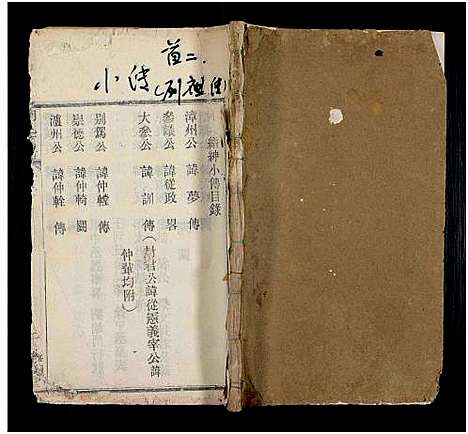 首二
小传(列祖传
縉紳小傳目錄
漳州公 諱夢 傳
參議公 諱從政 畧
大參公 諱訓 傳(封君公諱從憲義宰公諱
仲華均附)
別駕公 諱仲輊 傳
崇德公 諱仲輢 闕
瀘州公 諱仲輇 傳